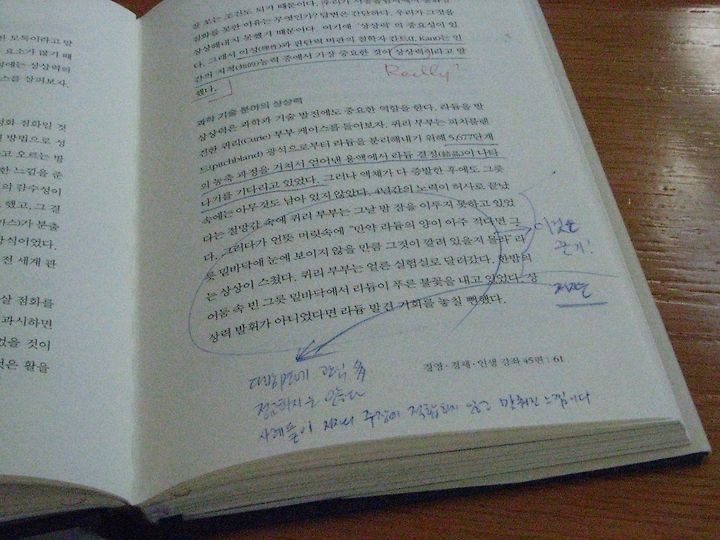 모독이라고 말
요소가 많기 때
에는 상상력의
스를 살펴보자.
화 점화일 것
방법으로 성
고 오르는 발
한 느낌을 준
의 감수성이
했고, 그 결
가스)가 분출
방식이었다.
전 세계 관
살 점화를
과시하면
없을 것이
것은 활을
점화를 못한 이유는 무엇인가? 답변은 간단하다. 우리가 그것을
상상해내지 못했기 때문이다. 여기에 '상상력'의 중요성이 있
다. 그래서 이성(理性)과 판단력 비판의 철학자 칸트(I. Kant)는 인
간의 지적(知的)능력 중에서 가장 중요한 것이 상상력이라고 말
했다.
Really?
과학 기술 분야의 상상력
상상력은 과학과 기술 발전에도 중요한 역할을 한다. 라듐을 발
견한 퀴리(Curie) 부부 케이스를 들어보자. 퀴리 부부는 피치블랜
드(pitchbland) 광석으로부터 라듐을 분리해내기 위해 5,677단계
의 농축 과정을 거쳐서 얻어낸 용액에서 라듐 결정(結晶)이 나타
나기를 기다리고 있었다. 그러나 액체가 다 증발한 후에도 그릇
속에는 아무것도 남아 있지 않았다. 4년간의 노력이 허사로 끝났
다는 절망감 속에 퀴리 부부는 그날 밤 잠을 이루지 못하고 있었
다. 그러다가 언뜻 머릿속에 "만약 라듐의 양이 아주 적다면 그
릇 밑바닥에 눈에 보이지 않을 만큼 그것이 깔려 있을지 몰라"라
는 상상이 스쳤다. 퀴리 부부는 얼른 실험실로 달려갔다. 한밤의
어둠 속 빈 그릇 밑바닥에서 라듐이 푸른 불꽃을 내고 있었다. 상
상력 발휘가 아니었다면 라듐 발견 기회를 놓칠 뻔했다.
끈기!
경영·경제·인생 강좌 45편 : 61
사례들이 저자의 주장에 적합하지 않고 맞춰진 느낌이다